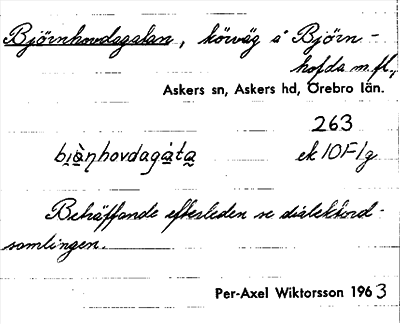 Björnhovdagatan, körväg å Björn-
hofda m.fl.,
Askers sn, Askers hd, Örebro län.
263
bi̯ànhovdagáta ek 10F1g
Beträffande efterleden se dialektord-
samlingen.
Per-Axel Wiktorsson 1963